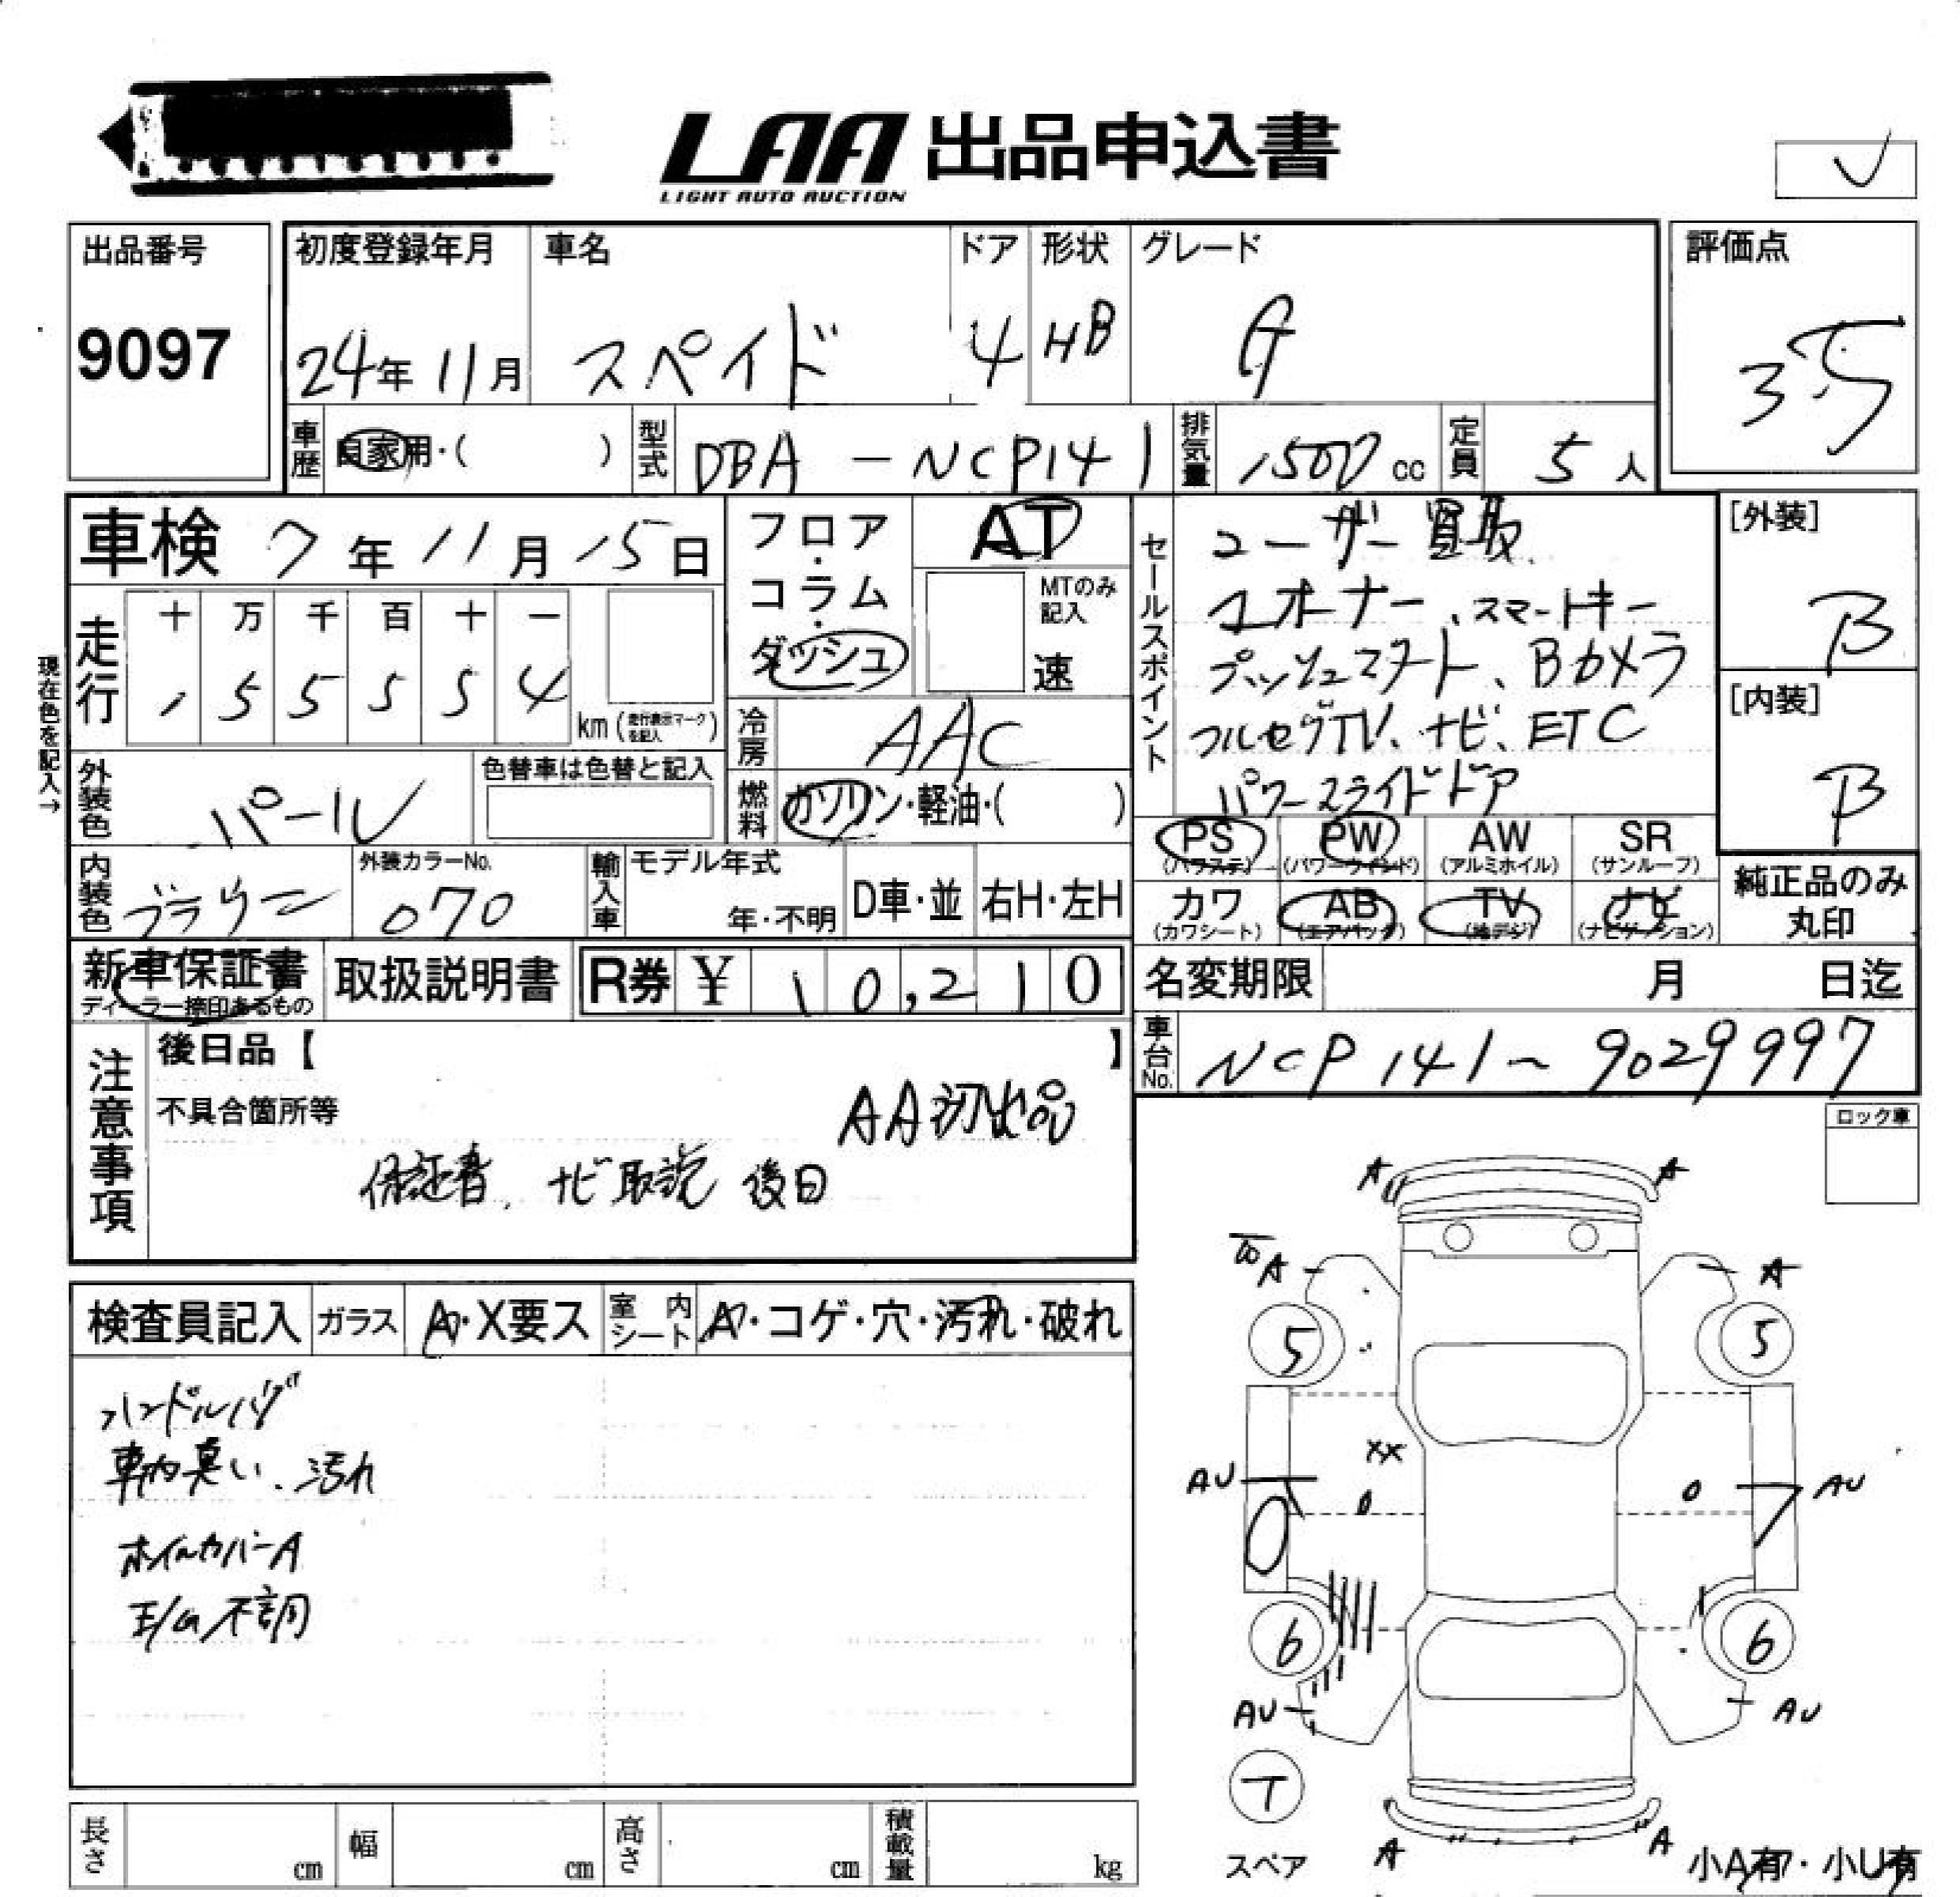 LAA 出品申込書
LIGHT AUTO AUCTION
出品番号 9097
初度登録年月 24年 11月
車名 スペイド
ドア 4
形状 HB
グレード G
評価点 3.5
車歴 自家用・( )
型式 DBA-NCP141
排気量 1500 cc
定員 5 人
車検 7年 11月 15日
フロア・コラム・ダッシュ
AT
MTのみ記入
速
セールスポイント
ユーザー買取
1オーナー、スマートキー
プッシュスタート、Bカメラ
フルセグTV、ナビ、ETC
パワースライドドア
[外装] B
[内装] B
現在色を記入→
走行 十 万 千 百 十 一
1 5 5 5 5 4 km (走行表示マークを記入)
冷房 AAC
燃料 ガソリン・軽油・( )
外装色 パール
色替車は色替と記入
内装色
外装カラーNo. 070
輸入車 モデル年式 年・不明 D車・並 右H・左H
PS (パワステ) PW (パワーウィンド) AW (アルミホイル) SR (サンルーフ)
カワ (カワシート) AB (エアバッグ) TV (地デジ) ナビ (ナビゲーション)
純正品のみ丸印
新車保証書 ディーラー捺印あるもの
取扱説明書
R券 ¥ 10,210
名変期限 月 日迄
車台No. NCP141-9029997
注意事項
後日品【 】
不具合箇所等
AA初出品
保証書、ナビ取説 後日
ロック車
検査員記入 ガラス A・X要ス 室内シート A・コゲ・穴・汚れ・破れ
ハンドルハゲ
車内臭い、汚れ
ホイルカバーA
E/G不調
A A
A A
5 5
XX
AU AU
6 6
AU AU
T
スペア
A A
小A有・小U有
長さ cm 幅 cm 高さ cm 積載量 kg